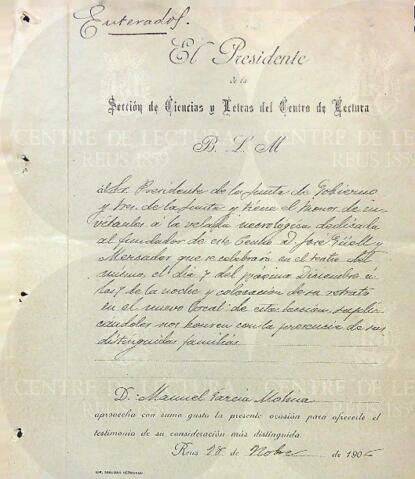 Enterados.
El Presidente
de la
Sección de Ciencias y Letras del Centro de Lectura
B. L. M
al Sr. Presidente de la Junta de Gobierno
y de la Junta y tiene el honor de in-
vitarles á la velada necrológica dedicada
al fundador de este Centro D. José Güell y
Mercader que se celebrará en el teatro del
mismo, el día 7 del próximo Diciembre á
las 9 de la noche y colocación de su retrato
en el nuevo local de esta Sección, supli-
candoles nos honren con la presencia de sus
distinguidas familias.
D. Manuel Garcia Molina
aprovecha con sumo gusto la presente ocasión para ofrecerle el
testimonio de su consideración más distinguida.
Reus 28 de Nobre de 190
CENTRE DE LECTURA
REUS 1859